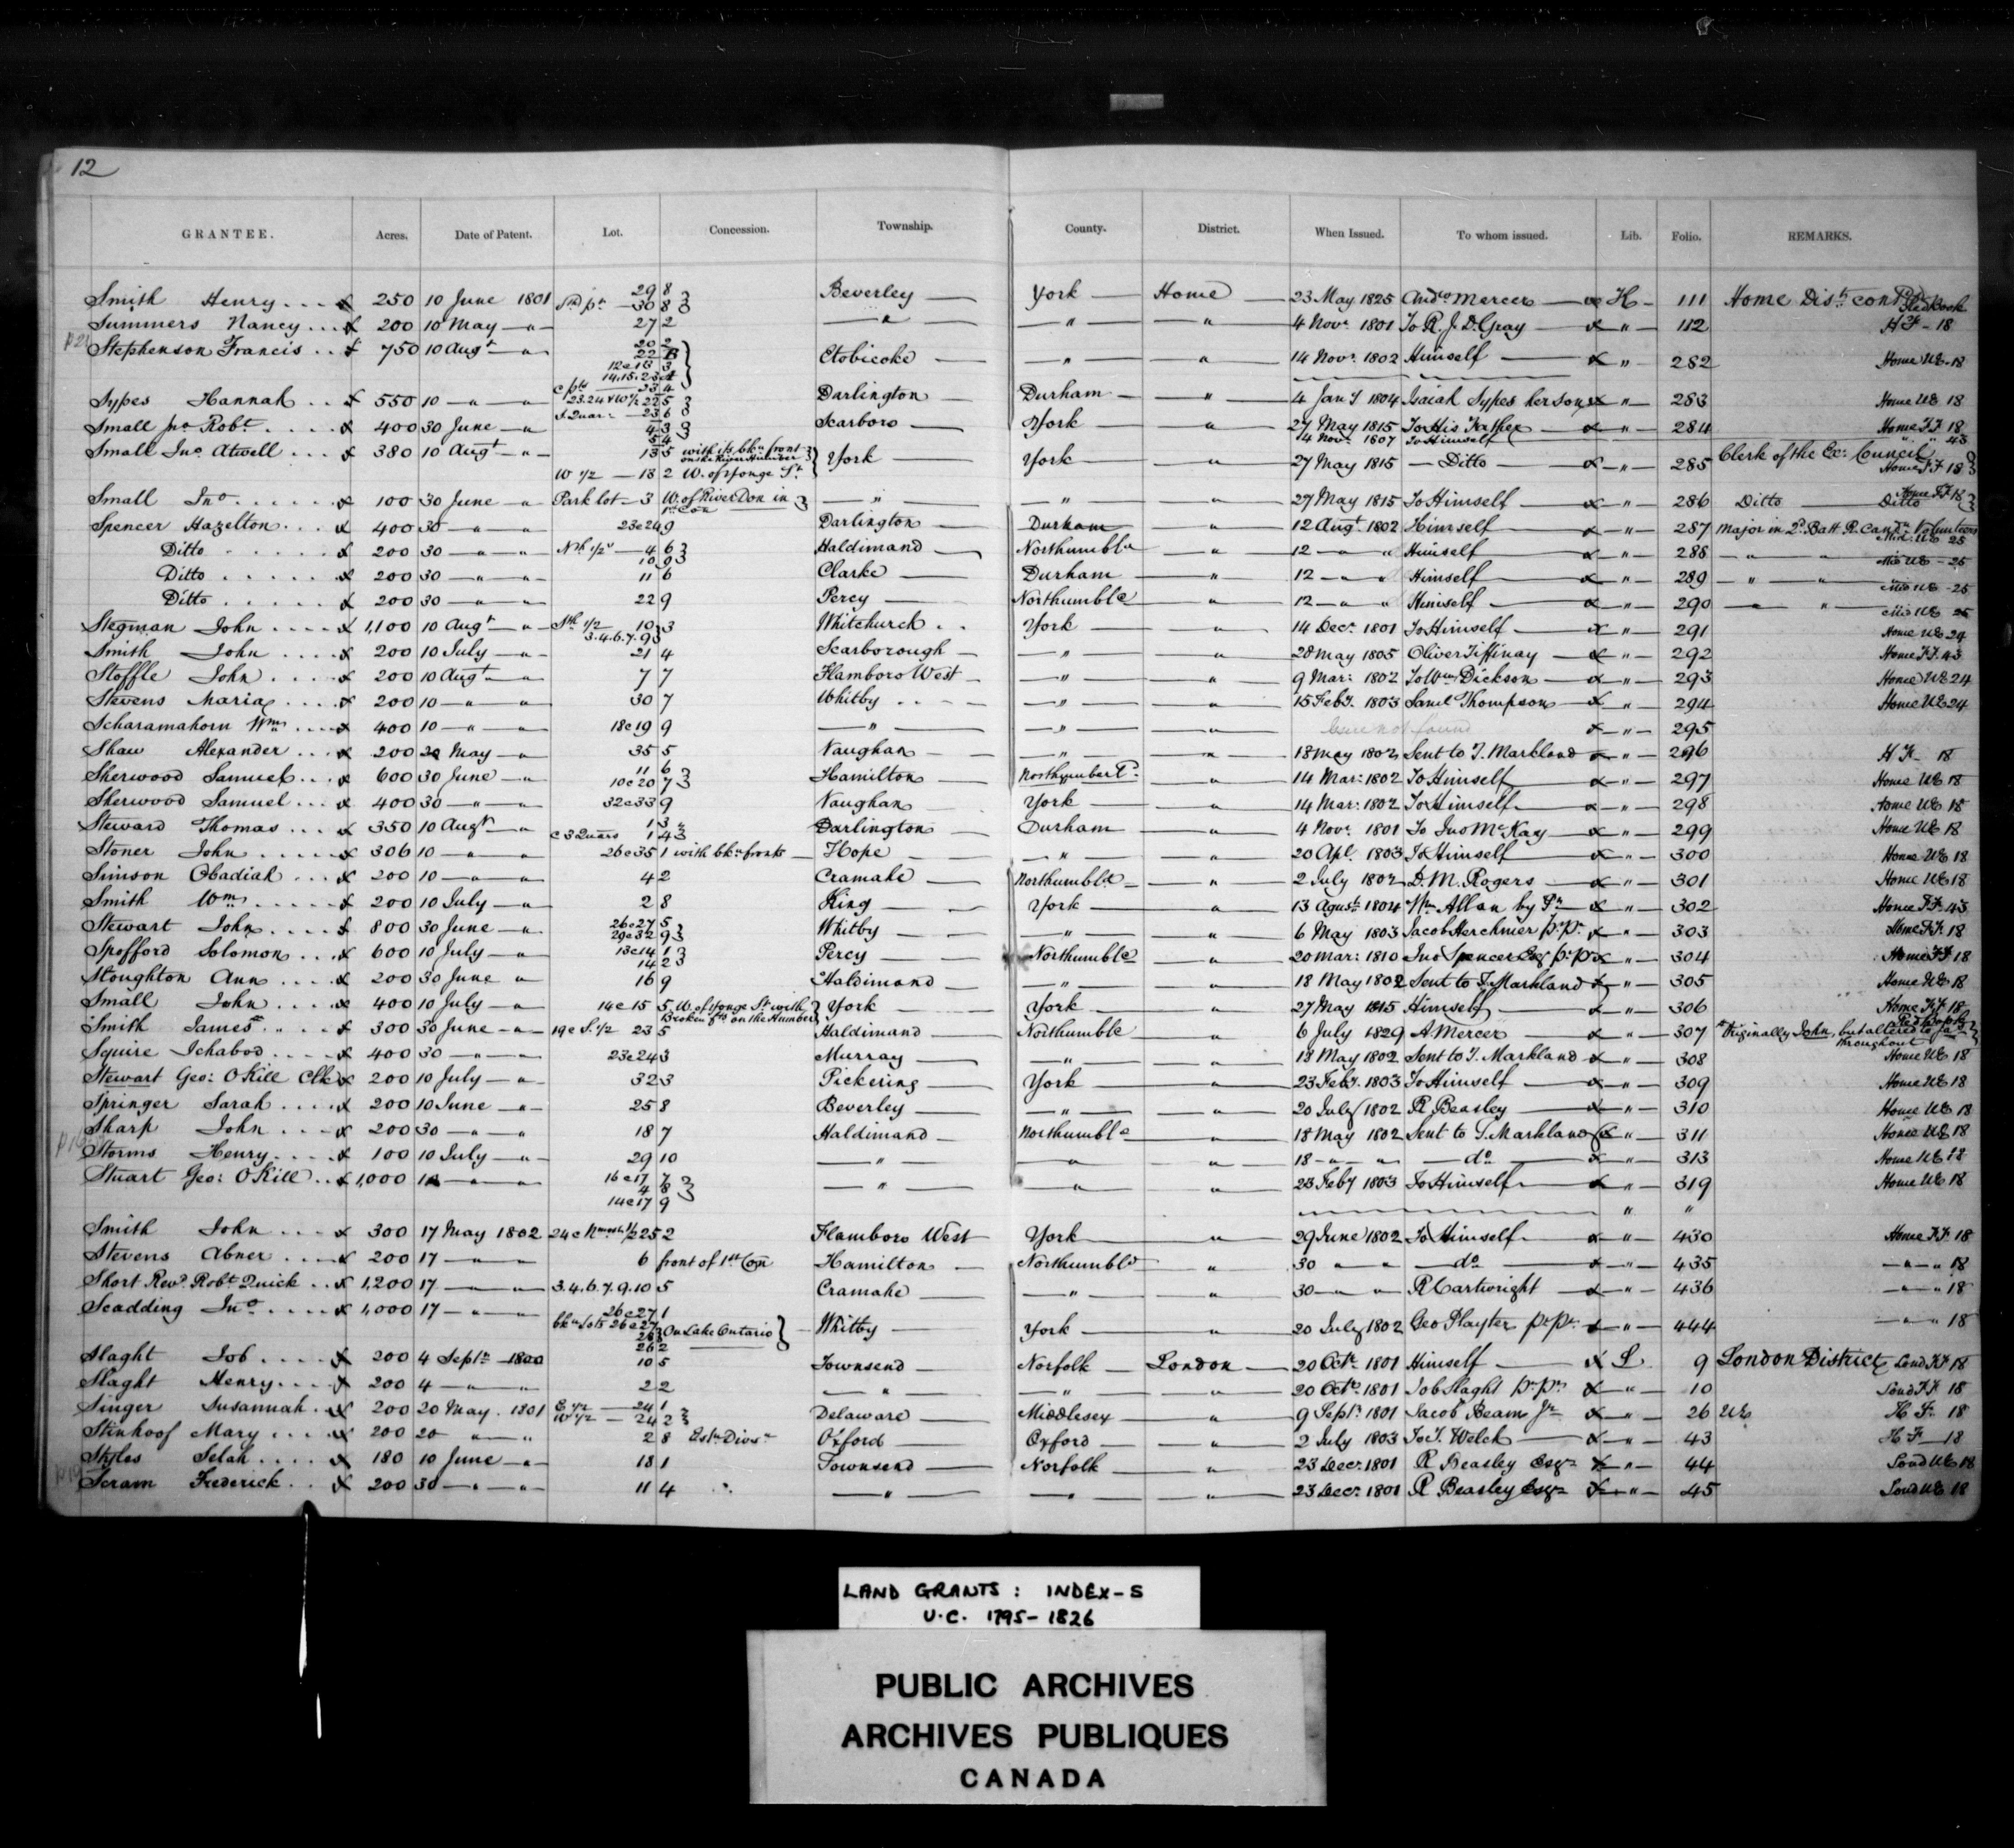 12
GRANTEE. Acres. Date of Patent. Lot. Concession. Township. County. District. When Issued. To whom issued. Lib. Folio. REMARKS.
Smith Henry 250 10 June 1801 29 8 Beverley York Home 23 May 1825 Andw Mercer H 111 Home Dist. cont'd
Sth pt 30 8
Summers Nancy 200 10 May " 27 2 " " " 4 Novr 1801 To R. J. D. Gray " 112 H F 18
Stephenson Francis 750 10 Augt " 20 2 Etobicoke " " 14 Novr 1802 Himself " 282 Home UE 18
22 B
12 e 13 3
14.15.23
Sypes Hannah 550 10 " " 23 4 Darlington Durham " 4 Jany 1804 Isaiah Sypes her son " 283 Home UE 18
23.24 & W 1/2 22 5
S. Quar: 23 6
Small jr Robt 400 30 June " 4 3 Scarboro York " 27 May 1815 To His Father " 284 Home FF 18
5 4 4 Novr 1807 To Himself " " 43
Small Jno Atwell 380 10 Augt " 13 5 with its bkn front on the River Humber York York 27 May 1815 Ditto " 285 Clerk of the Ex: Council Home FF 18
W 1/2 13 2 W. of Yonge St
Small Jno 100 30 June " Park lot 3 W. of River Don in 1st Con " " " 27 May 1815 To Himself " 286 Ditto Ditto Home FF 18
Spencer Hazelton 400 30 " " 23 e 24 9 Darlington Durham " 12 Augt 1802 Himself " 287 Major in 2d Batt R. Candn Volunteers
Ditto 200 30 " " Nth 1/2 4 6 Haldimand Northumbld " 12 " " Himself " 288 " "
10 9
Ditto 200 30 " " 11 6 Clarke Durham " 12 " " Himself " 289 " "
Ditto 200 30 " " 22 9 Percy Northumbld " 12 " " Himself " 290 " "
Stegman John 1,100 10 Augt " Sth 1/2 10 3 Whitchurch York " 14 Decr 1801 To Himself " 291 Home UE 24
3.4.6.7.9
Smith John 200 10 July " 21 4 Scarborough " " 28 May 1805 Oliver Tiffinay " 292 Home FF 43
Stoffle John 200 10 Augt " 7 7 Flamboro West " " 9 Mar: 1802 To Wm Dickson " 293 Home UE 24
Stevens Maria 200 10 " " 30 7 Whitby " " 15 Feby 1803 Saml Thompson " 294 Home UE 24
Scharamahorn Wm 400 10 " " 18 e 19 9 " " " Issue not found " 295
Shaw Alexander 200 20 May " 35 5 Vaughan " " 18 May 1802 Sent to T. Markland " 296 H F 18
Sherwood Samuel 600 30 June " 11 6 Hamilton Northumberld " 14 Mar: 1802 To Himself " 297 Home UE 18
10 e 20 7
Sherwood Samuel 400 30 " " 32 e 33 9 Vaughan York " 14 Mar: 1802 To Himself " 298 Home UE 18
Steward Thomas 350 10 Augt " 1 3 Darlington Durham " 4 Novr 1801 To Jno McKay " 299 Home UE 18
e 3 Quars 1 4
Stoner John 306 10 " " 26 e 35 1 with bkn fronts Hope " " 20 Apl. 1803 To Himself " 300 Home UE 18
Simson Obadiah 200 10 " " 4 2 Cramahe Northumbld " 2 July 1802 D. M. Rogers " 301 Home UE 18
Smith Wm 200 10 July " 2 8 King York " 13 Agust 1804 Wm Allan by Pr " 302 Home FF 43
Stewart John 800 30 June " 26 e 27 5 Whitby " " 6 May 1803 Jacob Herchmer pr pr " 303 Home FF 18
29 e 32 9
Spofford Solomon 600 10 July " 13 e 14 1 Percy Northumbld " 20 Mar: 1810 Jno Spencer Esq pr pr " 304 Home FF 18
14 2
Stoughton Ann 200 30 June " 16 9 Haldimand " " 18 May 1802 Sent to T. Markland " 305 Home UE 18
Small John 400 10 July " 14 e 15 5 W. of Yonge St. with Broken fts on the Humber York York " 27 May 1815 Himself " 306 Home FF 18
Smith James 300 30 June " 19 e S. 1/2 23 5 Haldimand Northumbld " 6 July 1829 A. Mercer " 307 Originally John, but altered to Jas throughout
Squire Ichabod 400 30 " " 23 e 24 3 Murray " " 18 May 1802 Sent to T. Markland " 308 Home UE 18
Stewart Geo: OKill Clk 200 10 July " 32 3 Pickering York " 23 Feby. 1803 To Himself " 309 Home UE 18
Springer Sarah 200 10 June " 25 8 Beverley " " 20 July 1802 R Beasley " 310 Home UE 18
Sharp John 200 30 " " 18 7 Haldimand Northumbld " 18 May 1802 Sent to T. Markland " 311 Home UE 18
Storms Henry 100 10 July " 29 10 " " " 18 " " do " 313 Home UE 22
Stuart Geo: OKill 1,000 10 " " 16 e 17 7 " " " 23 Feby 1803 To Himself " 319 Home UE 18
4 8
14 e 17 9 " "
Smith John 300 17 May 1802 24 e 1/2 25 2 Flamboro West York " 29 June 1802 To Himself " 430 Home FF 18
Stevens Abner 200 17 " " 6 front of 1st Con Hamilton Northumbld " 30 " " do " 435 " " 18
Short Revd Robt Quick 1,200 17 " " 3.4.6.7.9.10 5 Cramahe " " 30 " " R Cartwright " 436 " " 18
Scadding Jno 1,000 17 " " 26 e 27 1 Whitby York " 20 July 1802 Geo Playter pr pr " 444 " " 18
bkn Lots 26 e 27 On Lake Ontario
26 2
Slaght Job 200 4 Septr 1800 10 5 Townsend Norfolk London 20 Octr 1801 Himself L 9 London District Lond FF 18
Slaght Henry 200 4 " " 2 2 " " " 20 Octr 1801 Job Slaght pr pr " 10 Lond FF 18
Singer Susannah 200 20 May 1801 E 1/2 24 1 Delaware Middlesex " 9 Septr 1801 Jacob Beam Jr " 26 UE H F 18
W 1/2 24 2
Stinhoof Mary 200 20 " " 2 8 Estn Divisn Oxford Oxford " 2 July 1803 To T. Welch " 43 H F 18
Skyles Selah 180 10 June " 18 1 Townsend Norfolk " 23 Decr 1801 R Beasley Esqr " 44 Lond UE 18
Scram Frederick 200 30 " " 11 4 " " " 23 Decr 1801 R Beasley Esqr " 45 Lond UE 18
LAND GRANTS: INDEX-S
U.C. 1795-1826
PUBLIC ARCHIVES
ARCHIVES PUBLIQUES
CANADA